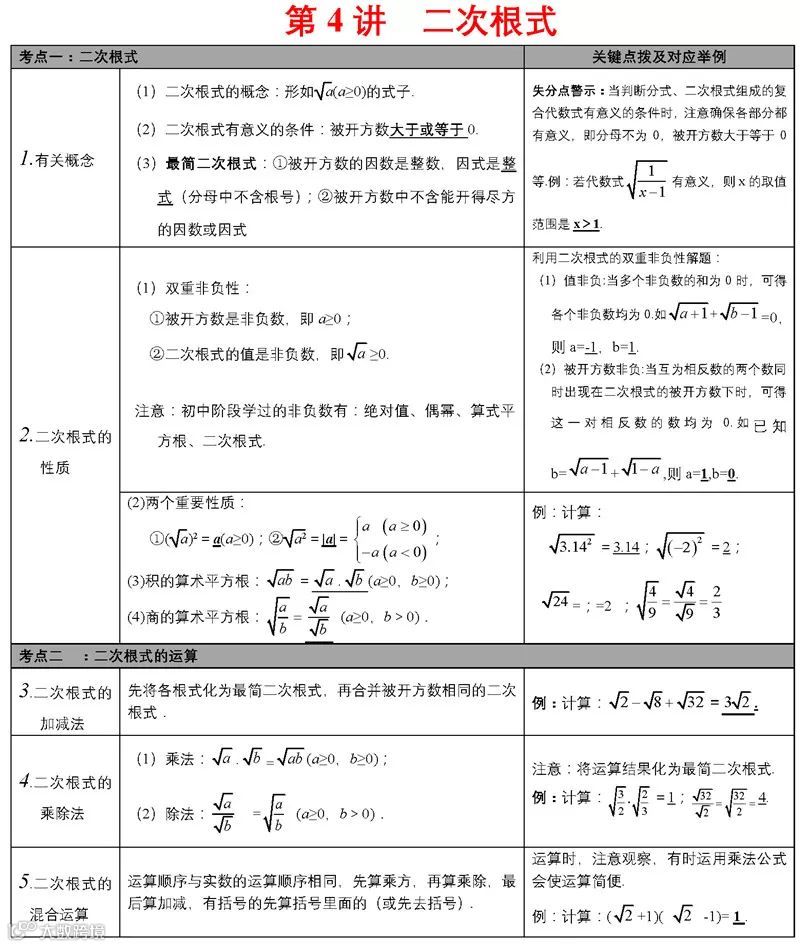 第 4 讲　二次根式
考点一：二次根式
关键点拨及对应举例
1.有关概念
（1）二次根式的概念：形如√a(a≥0)的式子.
（2）二次根式有意义的条件：被开方数大于或等于0.
（3）最简二次根式：①被开方数的因数是整数，因式是整
式（分母中不含根号）；②被开方数中不含能开得尽方
的因数或因式
失分点警示：当判断分式、二次根式组成的复
合代数式有意义的条件时，注意确保各部分都
有意义，即分母不为 0，被开方数大于等于 0
等.例：若代数式√(1/(x−1))有意义，则 x 的取值
范围是 x＞1.
2.二次根式的
性质
（1）双重非负性：
①被开方数是非负数，即 a≥0；
②二次根式的值是非负数，即√a≥0.
注意：初中阶段学过的非负数有：绝对值、偶幂、算式平
方根、二次根式.
利用二次根式的双重非负性解题：
（1）值非负:当多个非负数的和为 0 时，可得
各个非负数均为 0.如√(a+1)+√(b−1)=0，
则 a=-1，b=1.
（2）被开方数非负:当互为相反数的两个数同
时出现在二次根式的被开方数下时，可得
这一对相反数的数均为 0.如已知
b=√(a−1)+√(1−a),则 a=1,b=0.
(2)两个重要性质：
①(√a)²＝a(a≥0)；②√a²＝|a|＝{a (a≥0) −a (a<0)；
(3)积的算术平方根：√ab＝√a·√b(a≥0，b≥0)；
(4)商的算术平方根：√(a/b)＝√a/√b (a≥0，b＞0)．
例：计算：
√3.14²=3.14；√(−2)²=2；
√24=；=2 ；√(4/9)=√4/√9=2/3
考点二　：二次根式的运算
3.二次根式的
加减法
先将各根式化为最简二次根式，再合并被开方数相同的二次
根式．
例：计算：√2−√8+√32＝3√2．
4.二次根式的
乘除法
（1）乘法：√a·√b=√ab(a≥0，b≥0)；
（2）除法：√a/√b=√(a/b) (a≥0，b＞0)．
注意：将运算结果化为最简二次根式.
例：计算：√(3/2)·√(2/3)=1；√32/√2=√(32/2)=4.
5.二次根式的
混合运算
运算顺序与实数的运算顺序相同，先算乘方，再算乘除，最
后算加减，有括号的先算括号里面的（或先去括号）.
运算时，注意观察，有时运用乘法公式
会使运算简便.
例：计算：(√2+1)( √2 -1)= 1 .
大数跨境